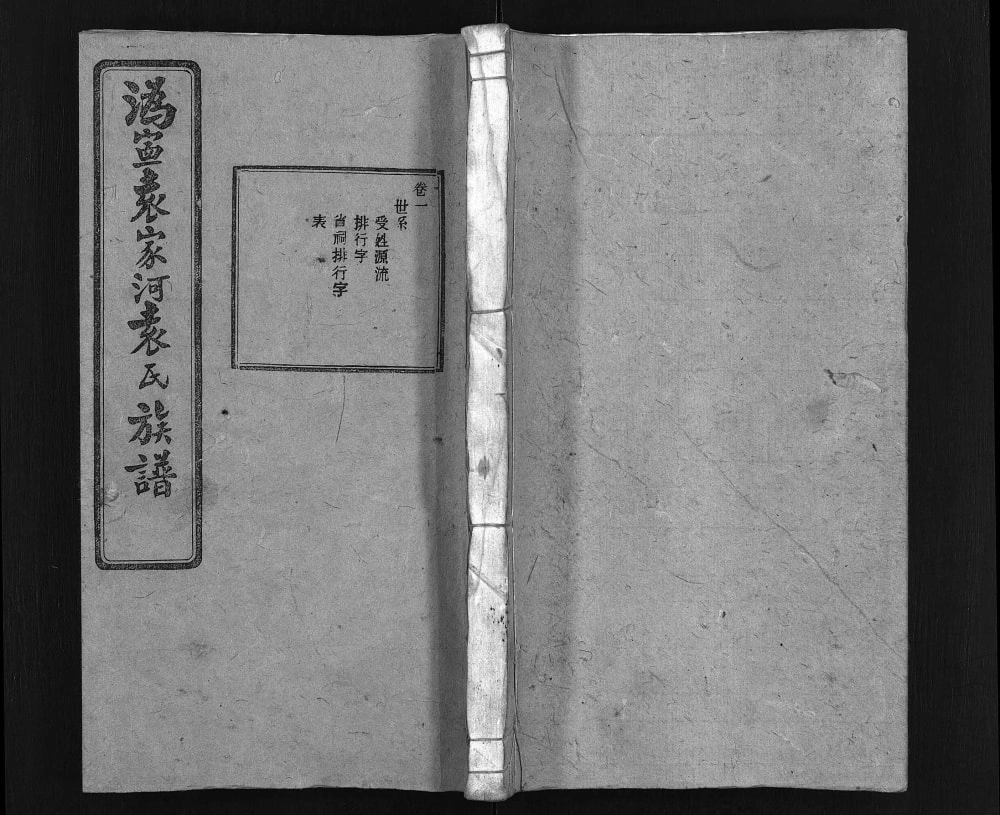 卷一
世系
受姓源流
排行字
省祠排行字
表
溈寍袁家河袁氏族譜